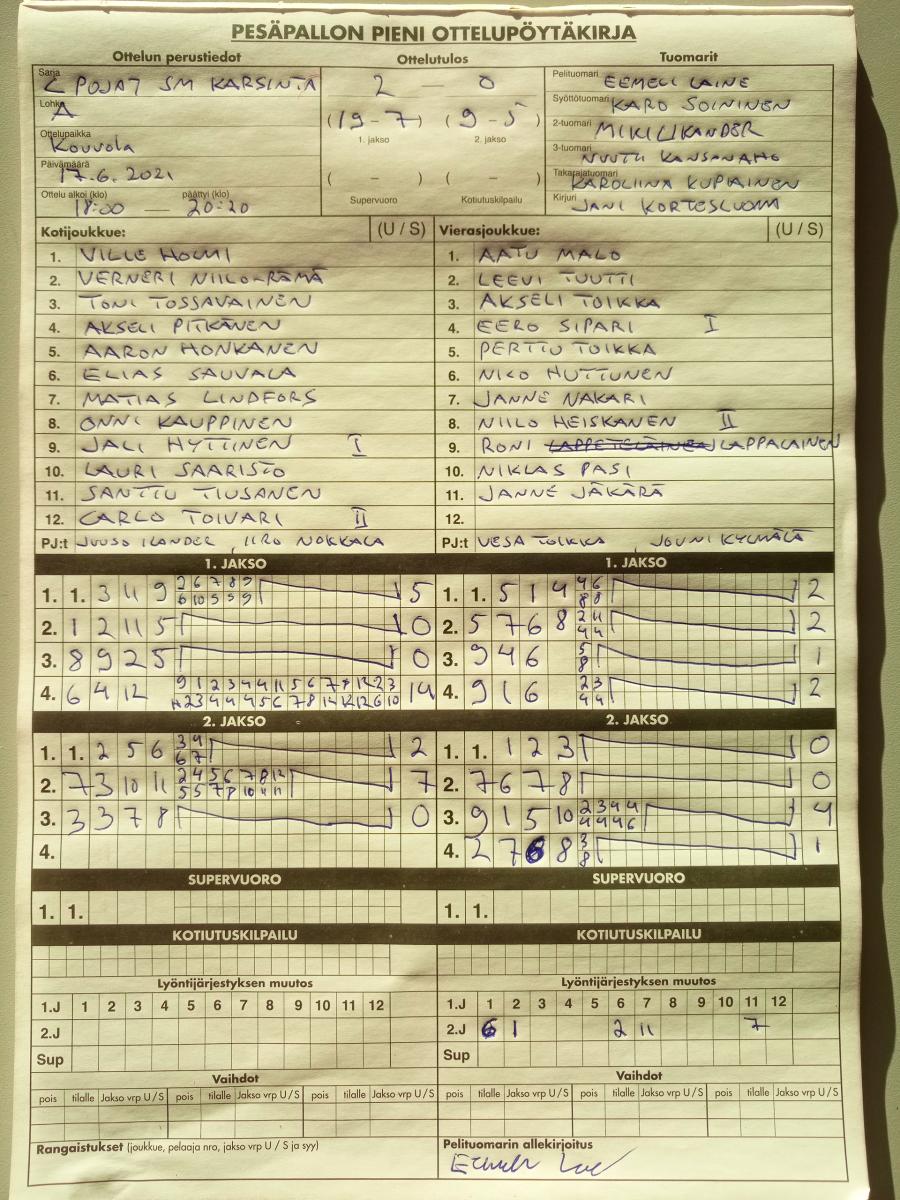 PESÄPALLON PIENI OTTELUPÖYTÄKIRJA
Ottelun perustiedot Ottelutulos Tuomarit
Sarja C POJAT SM KARSINTA 2 — 0 Pelituomari EEMELI LAINE
Lohko A (19 - 7) (9 - 5) Syöttötuomari KARO SOININEN
1. jakso 2. jakso 2-tuomari
Ottelupaikka Kouvola 3-tuomari NUUTTI KANSANAHO
Päivämäärä 17.6.2021 ( - ) ( - ) Takarajatuomari KAROLIINA KUPIAINEN
Ottelu alkoi (klo) päättyi (klo) Supervuoro Kotiutuskilpailu Kirjuri JANI KORTESLUOMA
18:00 — 20:20
Kotijoukkue: (U / S) Vierasjoukkue: (U / S)
1. VILLE HOLMI 1. AATU MALO
2. VERNERI NIILO-RÄMÄ 2. LEEVI TUUTTI
3. TONI TOSSAVAINEN 3. AKSELI TOIKKA
4. AKSELI PITKÄNEN 4. EERO SIPARI I
5. AARON HONKANEN 5. PERTTU TOIKKA
6. ELIAS SAUVALA 6. NIKO HUTTUNEN
7. MATIAS LINDFORS 7. JANNE NAKARI
8. ONNI KAUPPINEN 8. NIILO HEISKANEN II
9. JALI HYTTINEN I 9. RONI LAPPALAINEN
10. LAURI SAARISTO 10. NIKLAS PASI
11. SANTTU TIUSANEN 11. JANNE JÄKÄRÄ
12. CARLO TOIVARI II 12.
PJ:t JUUSO ILANDER, IIRO NOKKALA PJ:t VESA TOIKKA, JOUNI KYLMÄLÄ
1. JAKSO 1. JAKSO
1. 1. 3 4 9 2 6 7 8 9 5 1. 1. 5 1 4 4 6 2
6 10 5 5 9 8 8
2. 1 2 11 5 0 2. 5 7 6 8 2 11 2
4 4
3. 8 9 2 5 0 3. 9 4 6 5 1
8
4. 6 4 12 9 1 2 3 4 4 11 5 6 7 8 12 2 3 14 4. 9 1 6 2 3 2
4 4
2. JAKSO 2. JAKSO
1. 1. 2 5 6 3 4 2 1. 1. 1 2 3 0
6 7
2. 7 3 10 11 2 4 5 6 7 8 12 7 2. 7 6 7 8 0
5 5 7 8 10 11 11
3. 3 3 7 8 0 3. 9 1 5 10 2 3 4 4 4
4 4 4 6
4. 4. 2 7 6 8 3 1
8
SUPERVUORO SUPERVUORO
1. 1. 1. 1.
KOTIUTUSKILPAILU KOTIUTUSKILPAILU
Lyöntijärjestyksen muutos Lyöntijärjestyksen muutos
1.J 1 2 3 4 5 6 7 8 9 10 11 12 1.J 1 2 3 4 5 6 7 8 9 10 11 12
2.J 2.J 6 1 2 11 7
Sup Sup
Vaihdot Vaihdot
pois tilalle Jakso vrp U / S pois tilalle Jakso vrp U / S pois tilalle Jakso vrp U / S pois tilalle Jakso vrp U / S pois tilalle Jakso vrp U / S pois tilalle Jakso vrp U / S
Rangaistukset (joukkue, pelaaja nro, jakso vrp U / S ja syy) Pelituomarin allekirjoitus